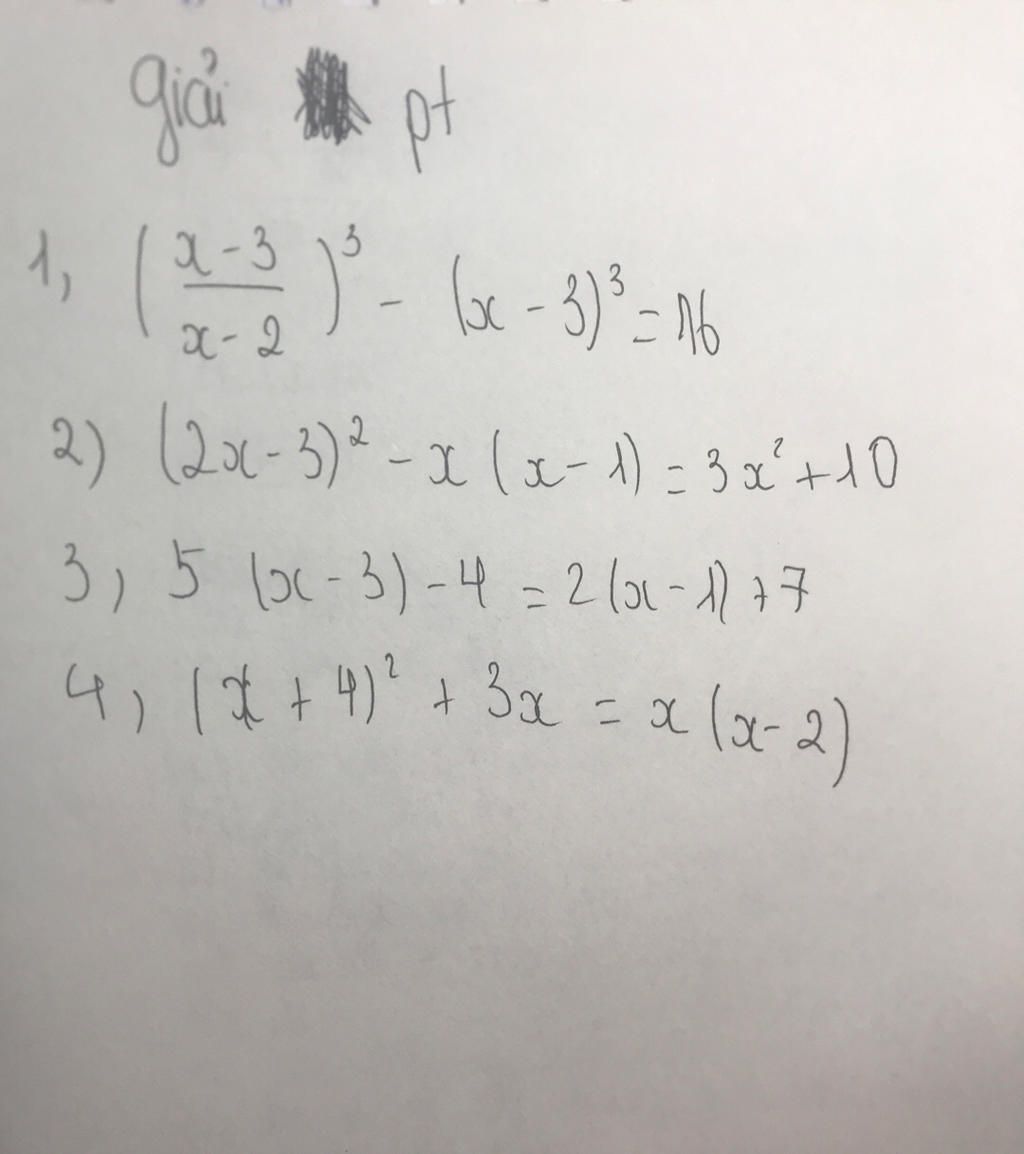 giải pt
1, (x-3/x-2)³ - (x-3)³ = 16
2) (2x-3)² - x(x-1) = 3x² + 10
3, 5 (x-3) - 4 = 2(x-1) + 7
4, (x+4)² + 3x = x(x-2)